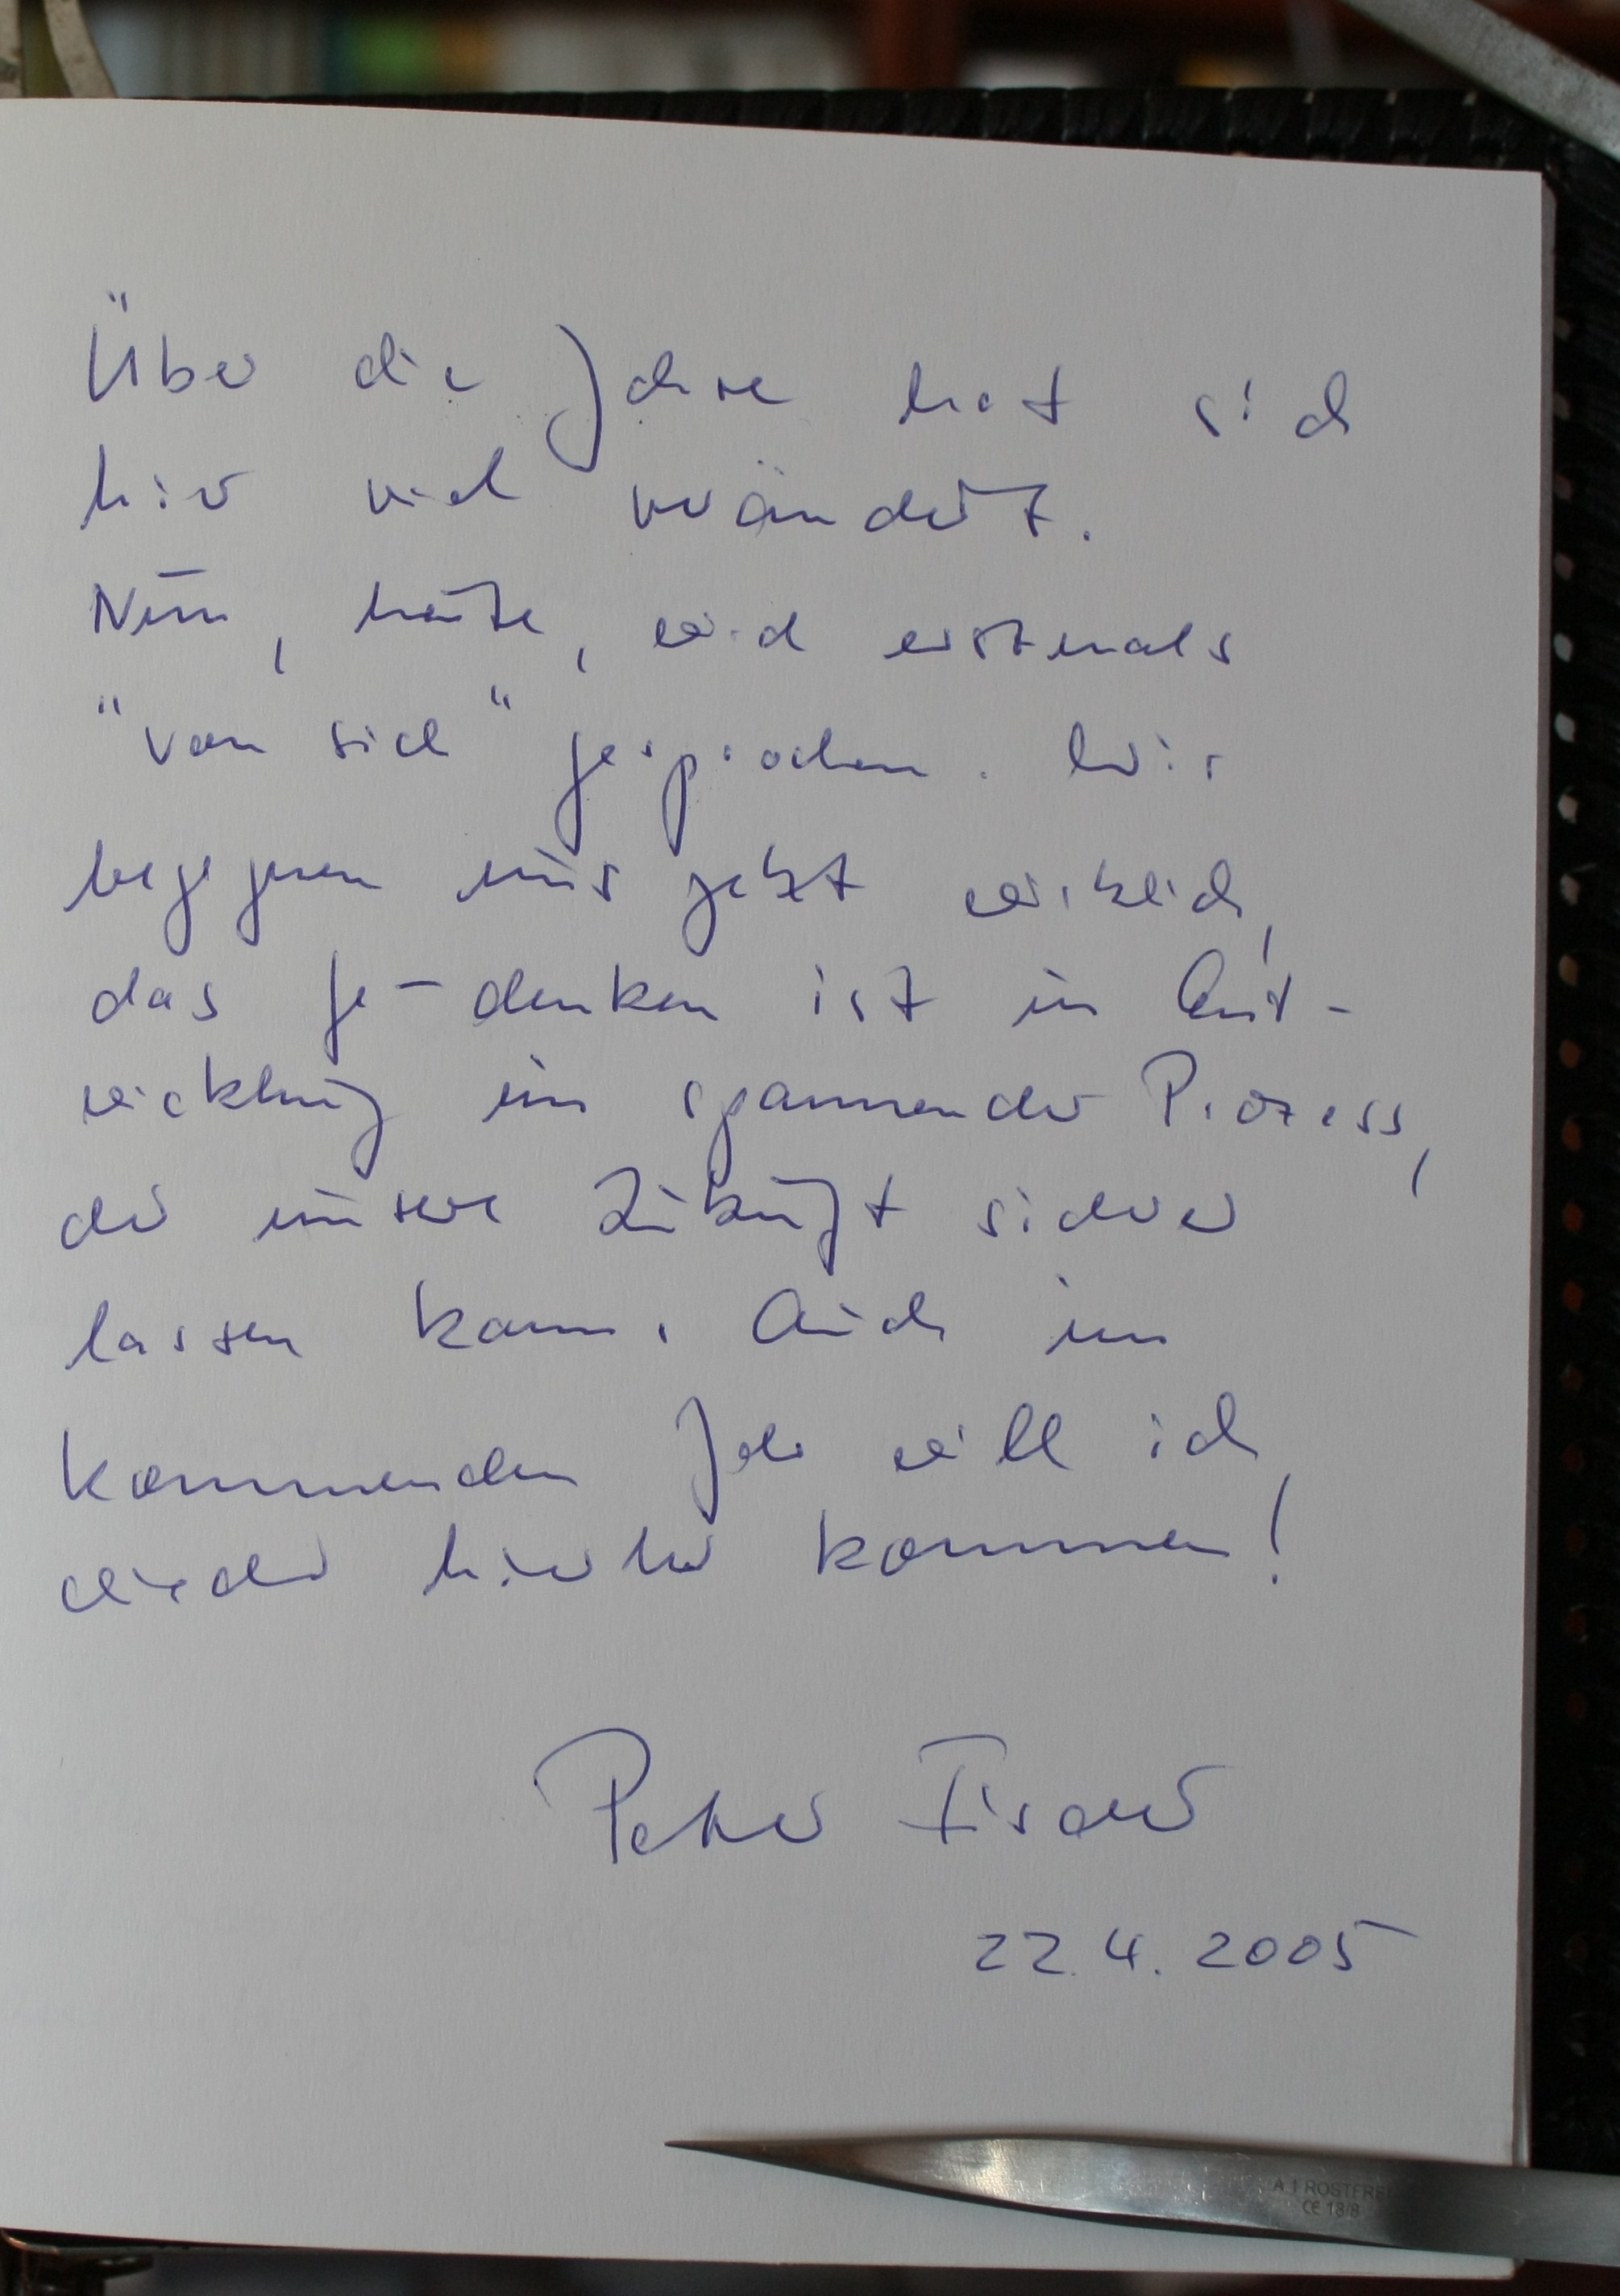 Über die Jahre hat sich
hier viel verändert.
Nun, heute, wird erstmals
"von sich" gesprochen. Wir
begegnen uns jetzt wirklich,
das Ge-denken ist in Ent-
wicklung ein spannender Prozess,
der unsere Zukunft sicherer
lassen kann. Auch im
kommenden Jahr will ich
wieder hierher kommen!
Peter Fischer
22.4.2005
CE 18/8